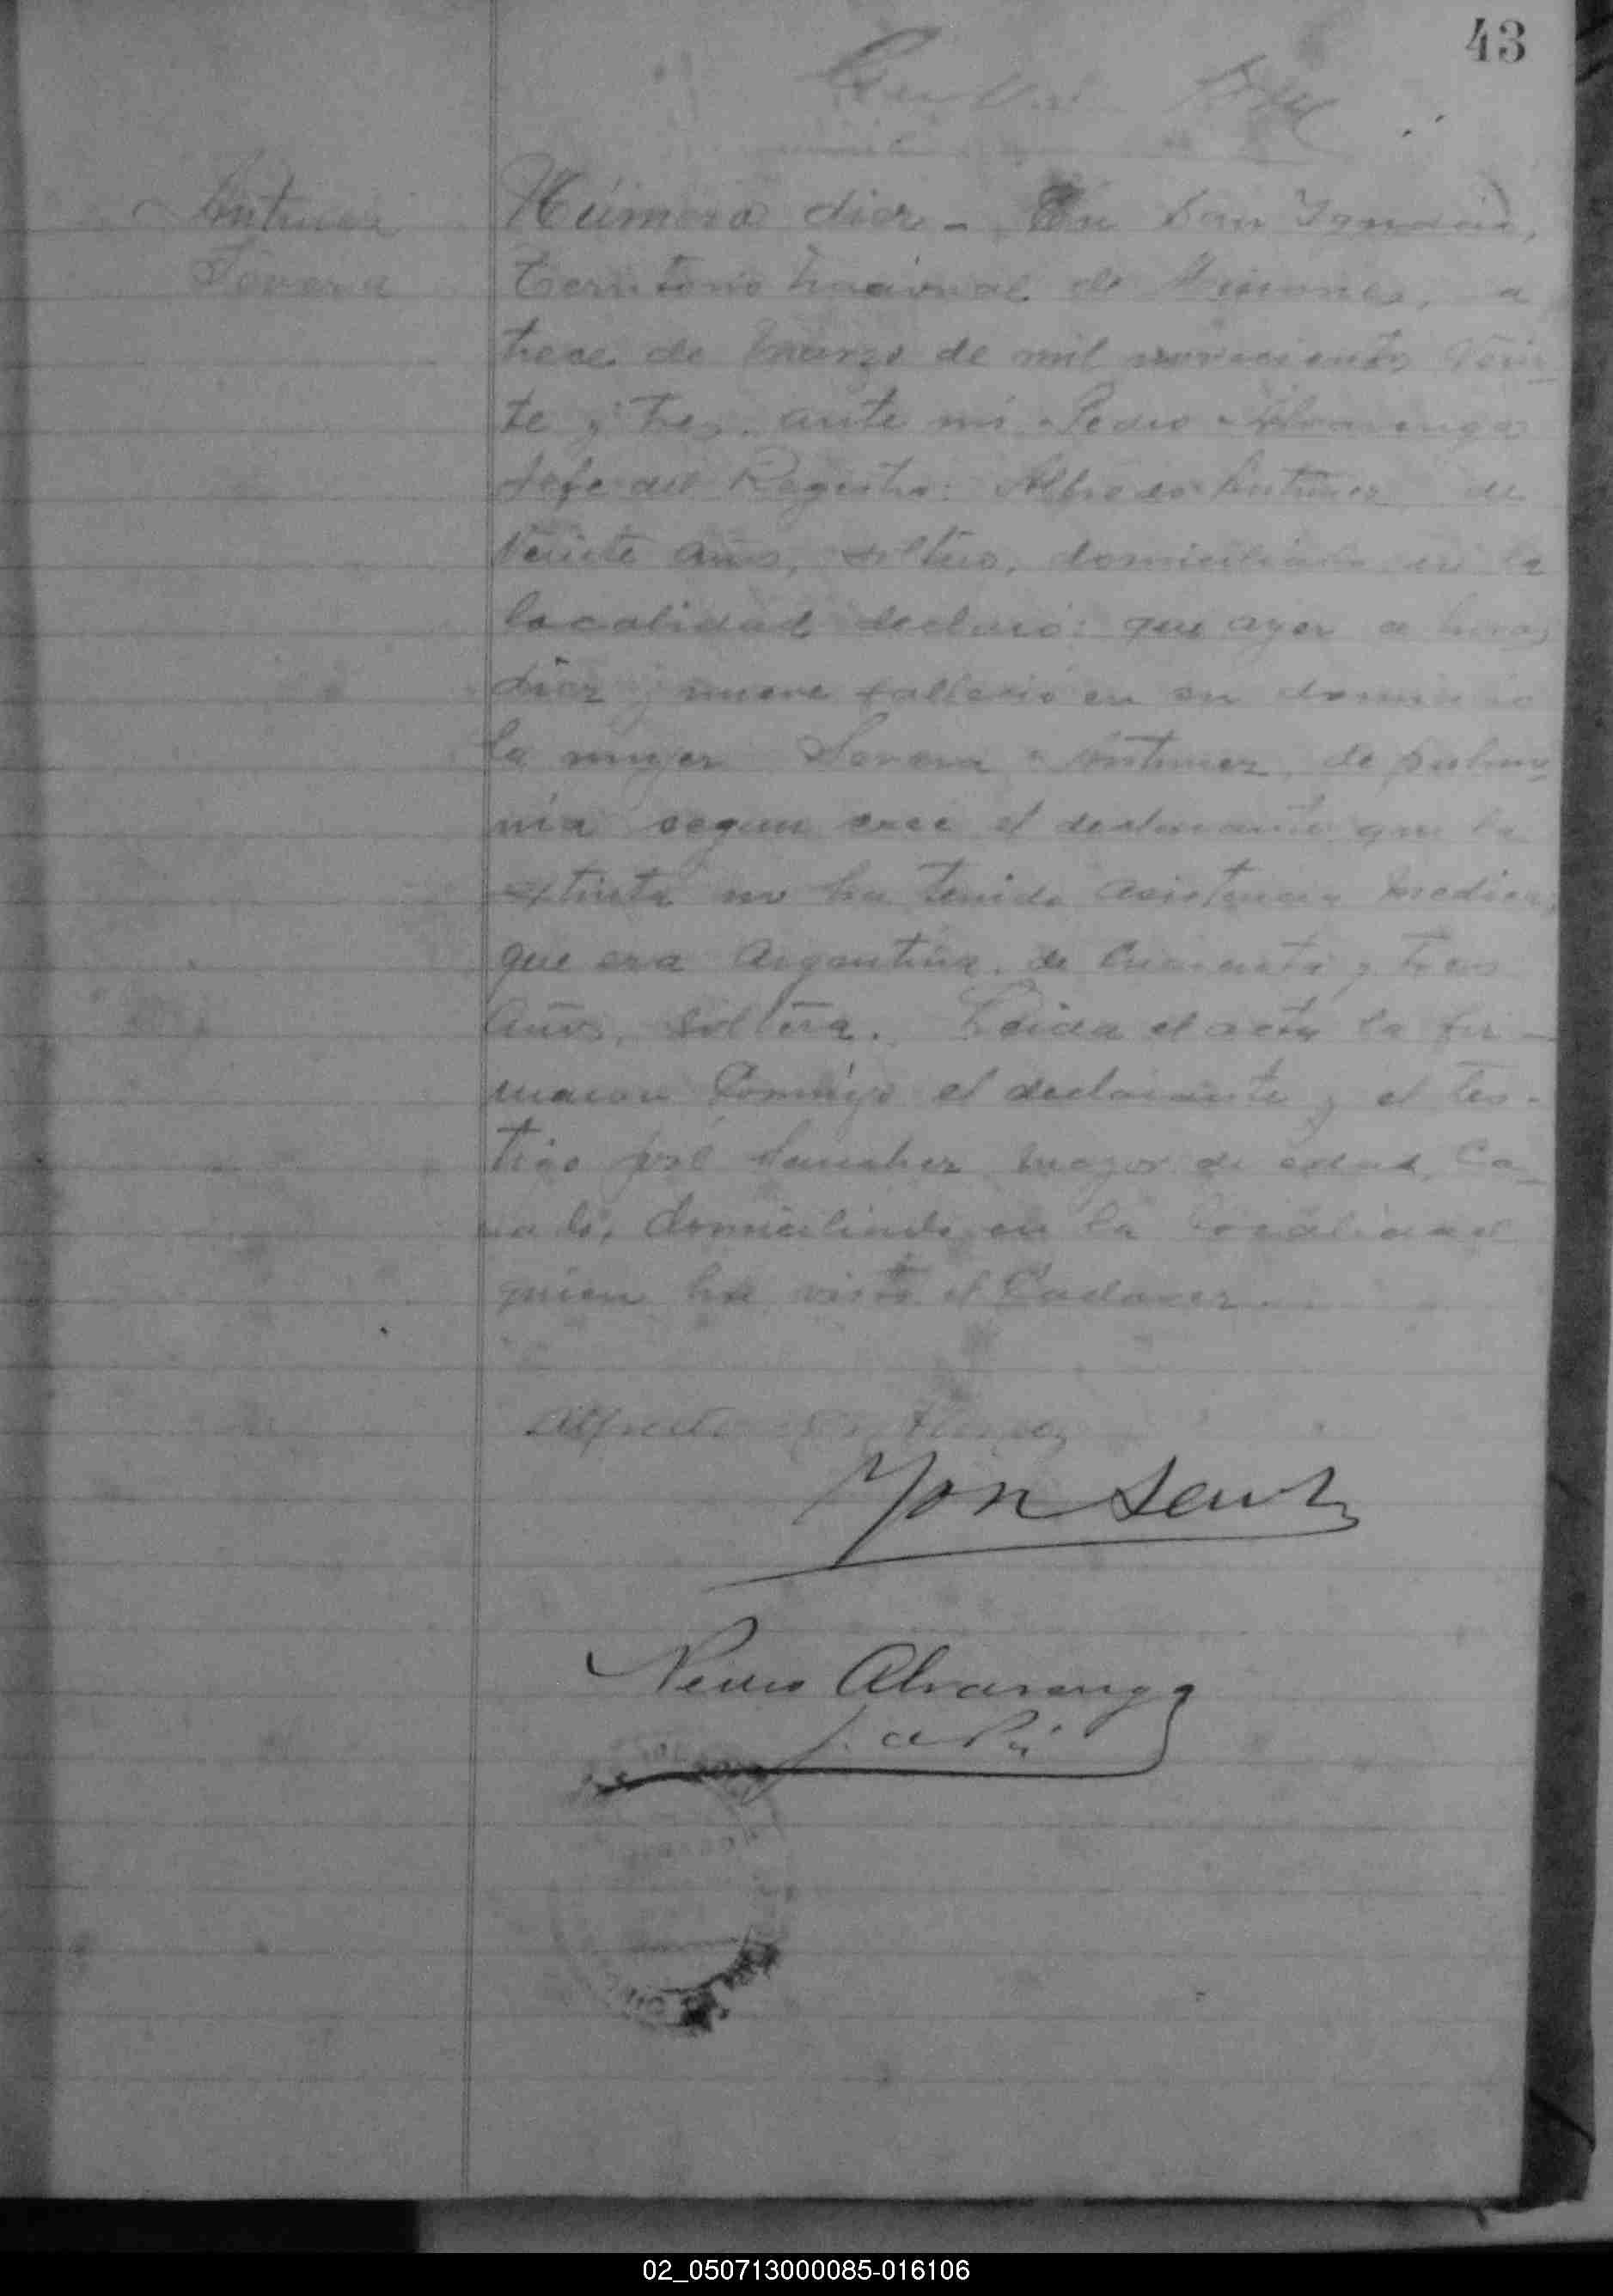 43
Antunez
Severa
Número diez - En San Ignacio,
Territorio Nacional de Misiones, a
trece de Marzo de mil novecientos vein-
te y tres, ante mi Pedro Alvarenga
Jefe del Registro: Alfredo Antunez de
veinte años, soltero, domiciliado en la
localidad declaró: que ayer a horas
diez y nueve fallecio en su domicilio
la mujer Severa Antunez, de pulmo-
nia segun cree el declarante que la
extinta no ha tenido asistencia medica,
que era Argentina, de cuarenta y tres
años, soltera. Leida el acta la fir-
maron conmigo el declarante y el tes-
tigo José Sanchez mayor de edad, ca-
sado, domiciliado en la localidad
quien ha visto el cadaver.
Alfredo Antunez
Pedro Alvarenga
02_050713000085-016106